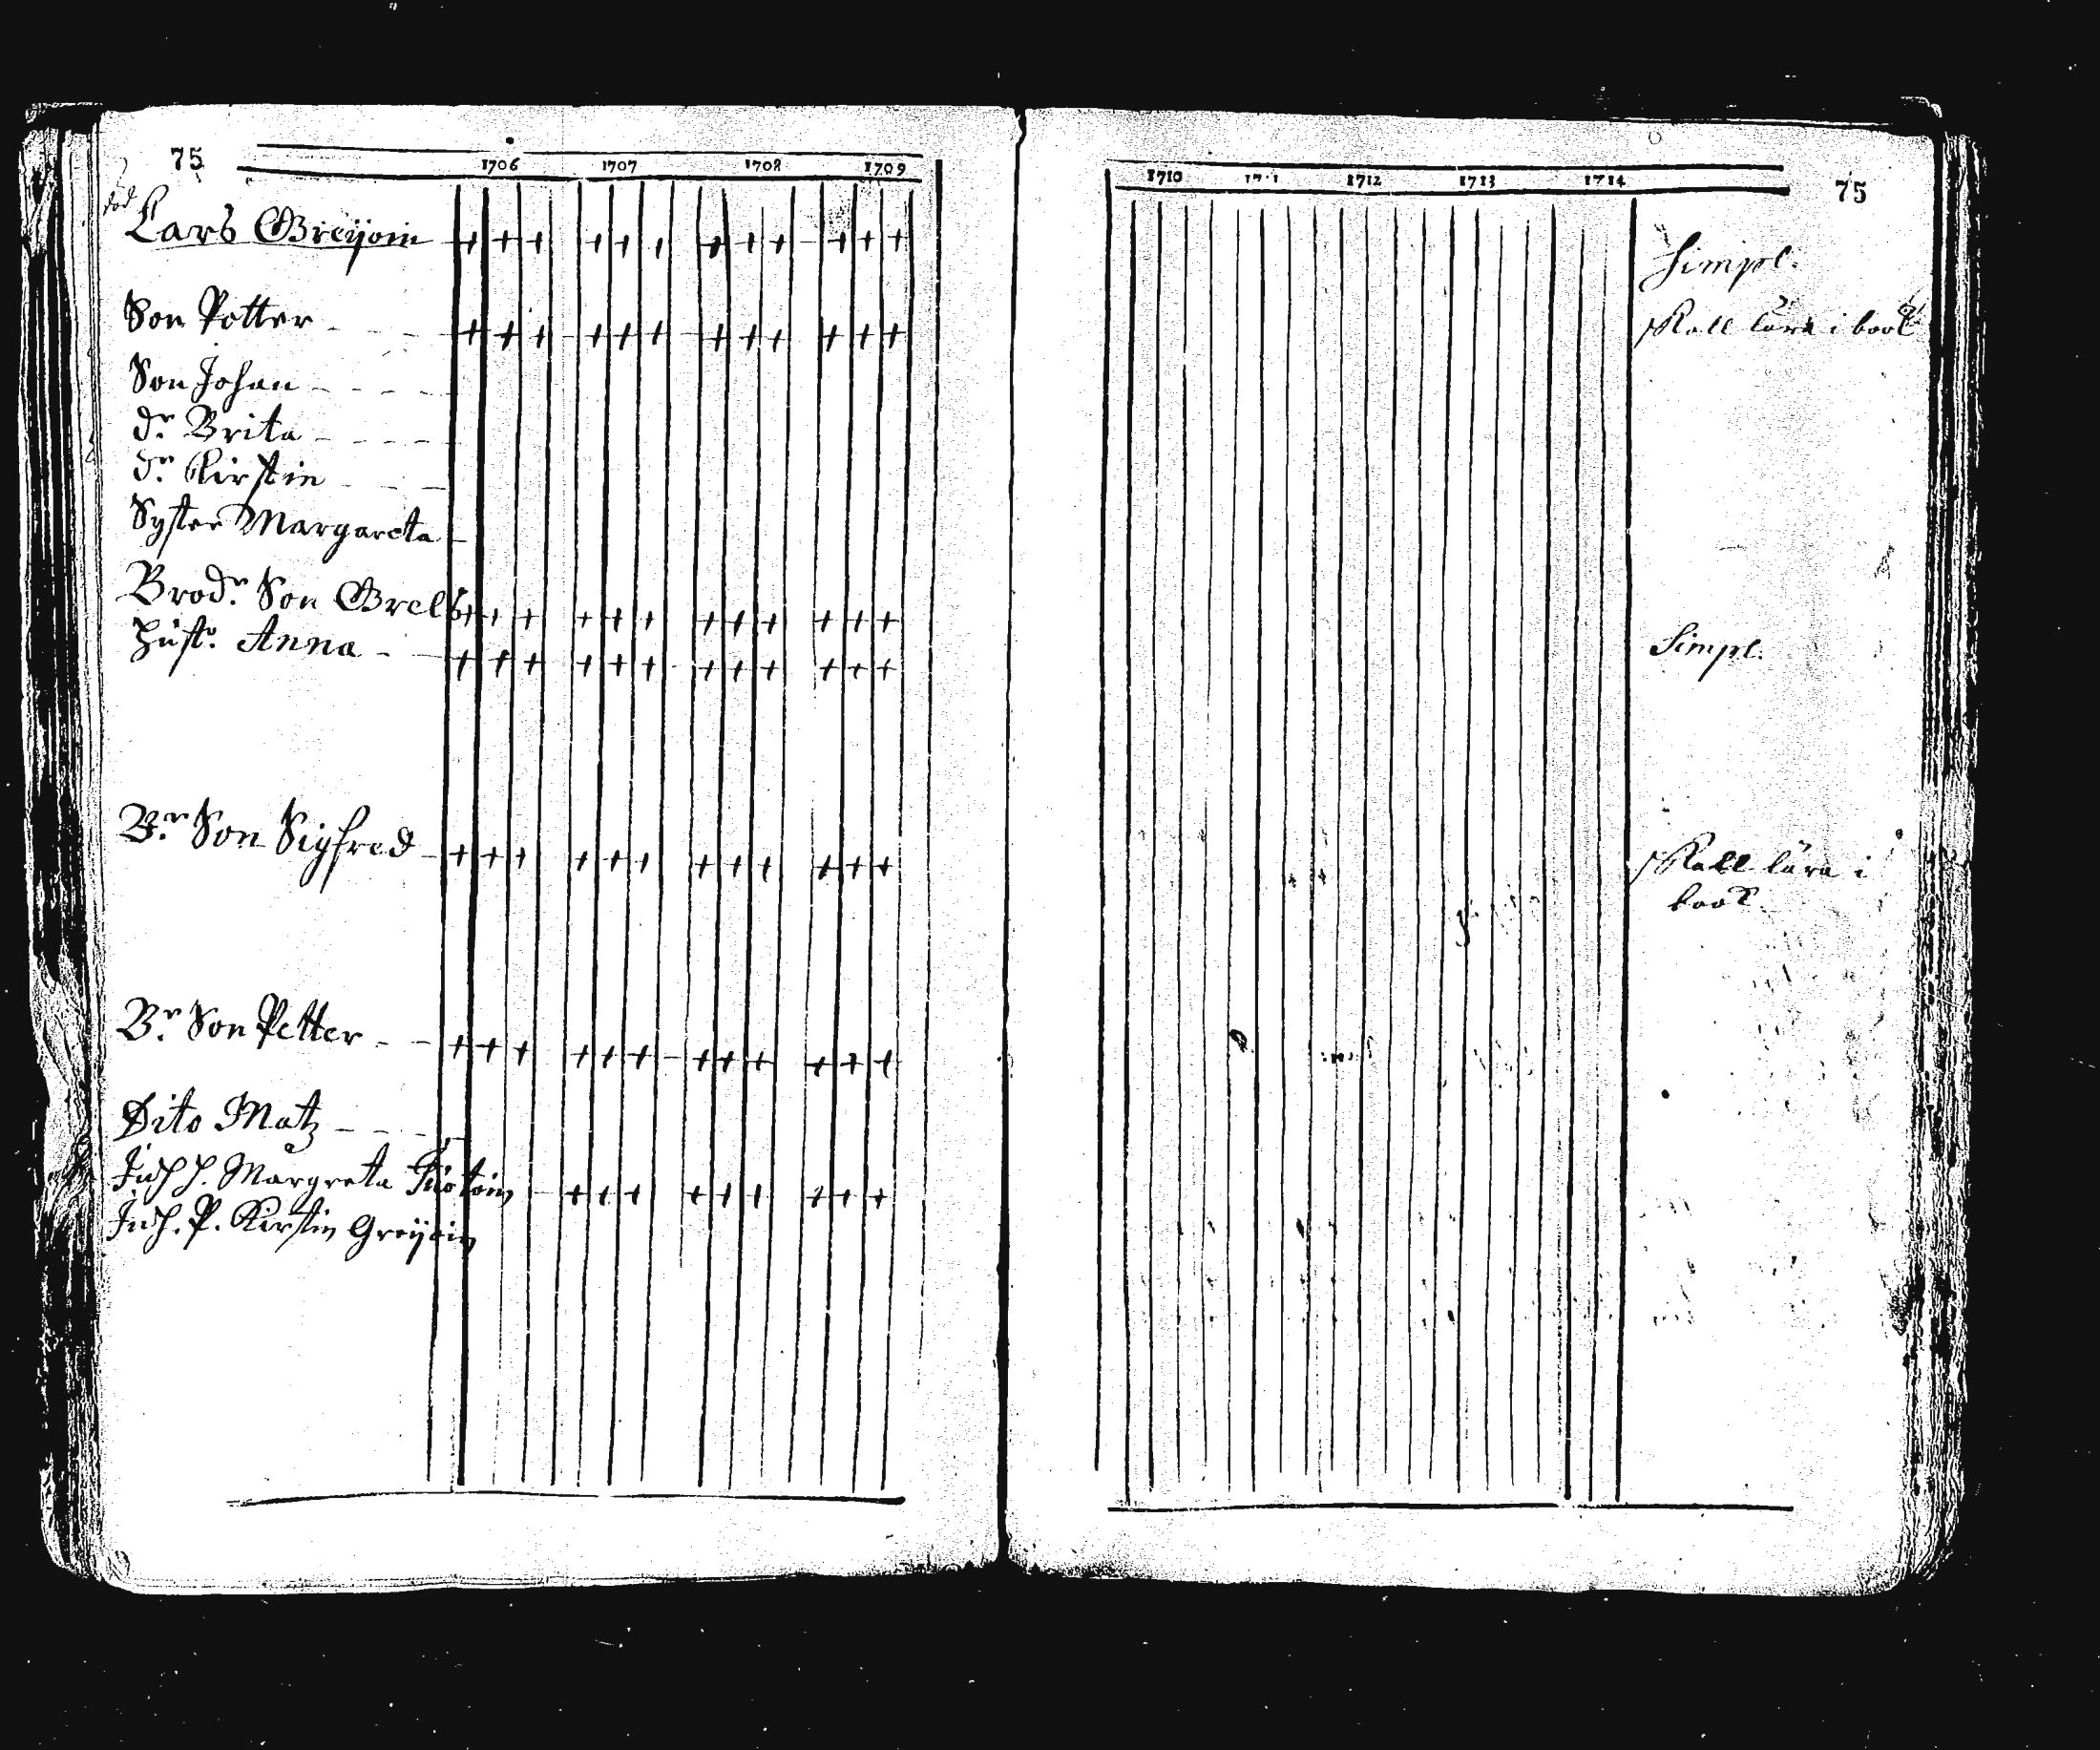 75
1706 1707 1708 1709
död
Lars Greijoin + + + + + + + + + + + +
Son Petter + + + + + + + + + + + +
Son Johan
dr. Brita
dr. Kirstin
Syster Margareta
Brodr. Son Grels + + + + + + + + + + + +
Hustr. Anna + + + + + + + + + + + +
Br. Son Sigfred + + + + + + + + + + + +
Br. Son Petter + + + + + + + + + + + +
Dito Matz
Inh. H. Margreta + + + + + + + + +
Inh. P. Kirstin Greijoin
1710 1711 1712 1713 1714
75
Simpl.
skall lära i book
Simpl.
skall lära i
book.